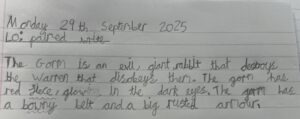 Monday 29th September 2025
LO: paired write
The Gorm is an evil, giant rabbit that destroys
the Warren that disobeys them. The gorm has
red glowing in the dark eyes. The gorm has
a bony belt and a big rusted armour.